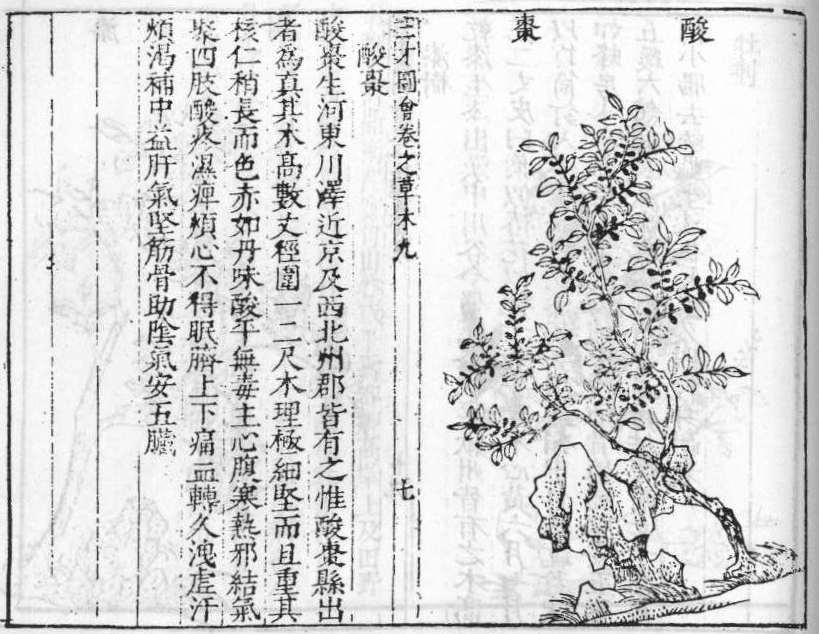 酸棗
三才圖會卷之草木九
七
酸棗
酸棗生河東川澤近京及西北州郡皆有之惟酸棗縣出
者為真其木高數丈徑圍一二尺木理極細堅而且重其
核仁稍長而色赤如丹味酸平無毒主心腹寒熱邪結氣
聚四肢酸疼濕痺煩心不得眠臍上下痛血轉久洩虛汗
煩渴補中益肝氣堅筋骨助陰氣安五臟